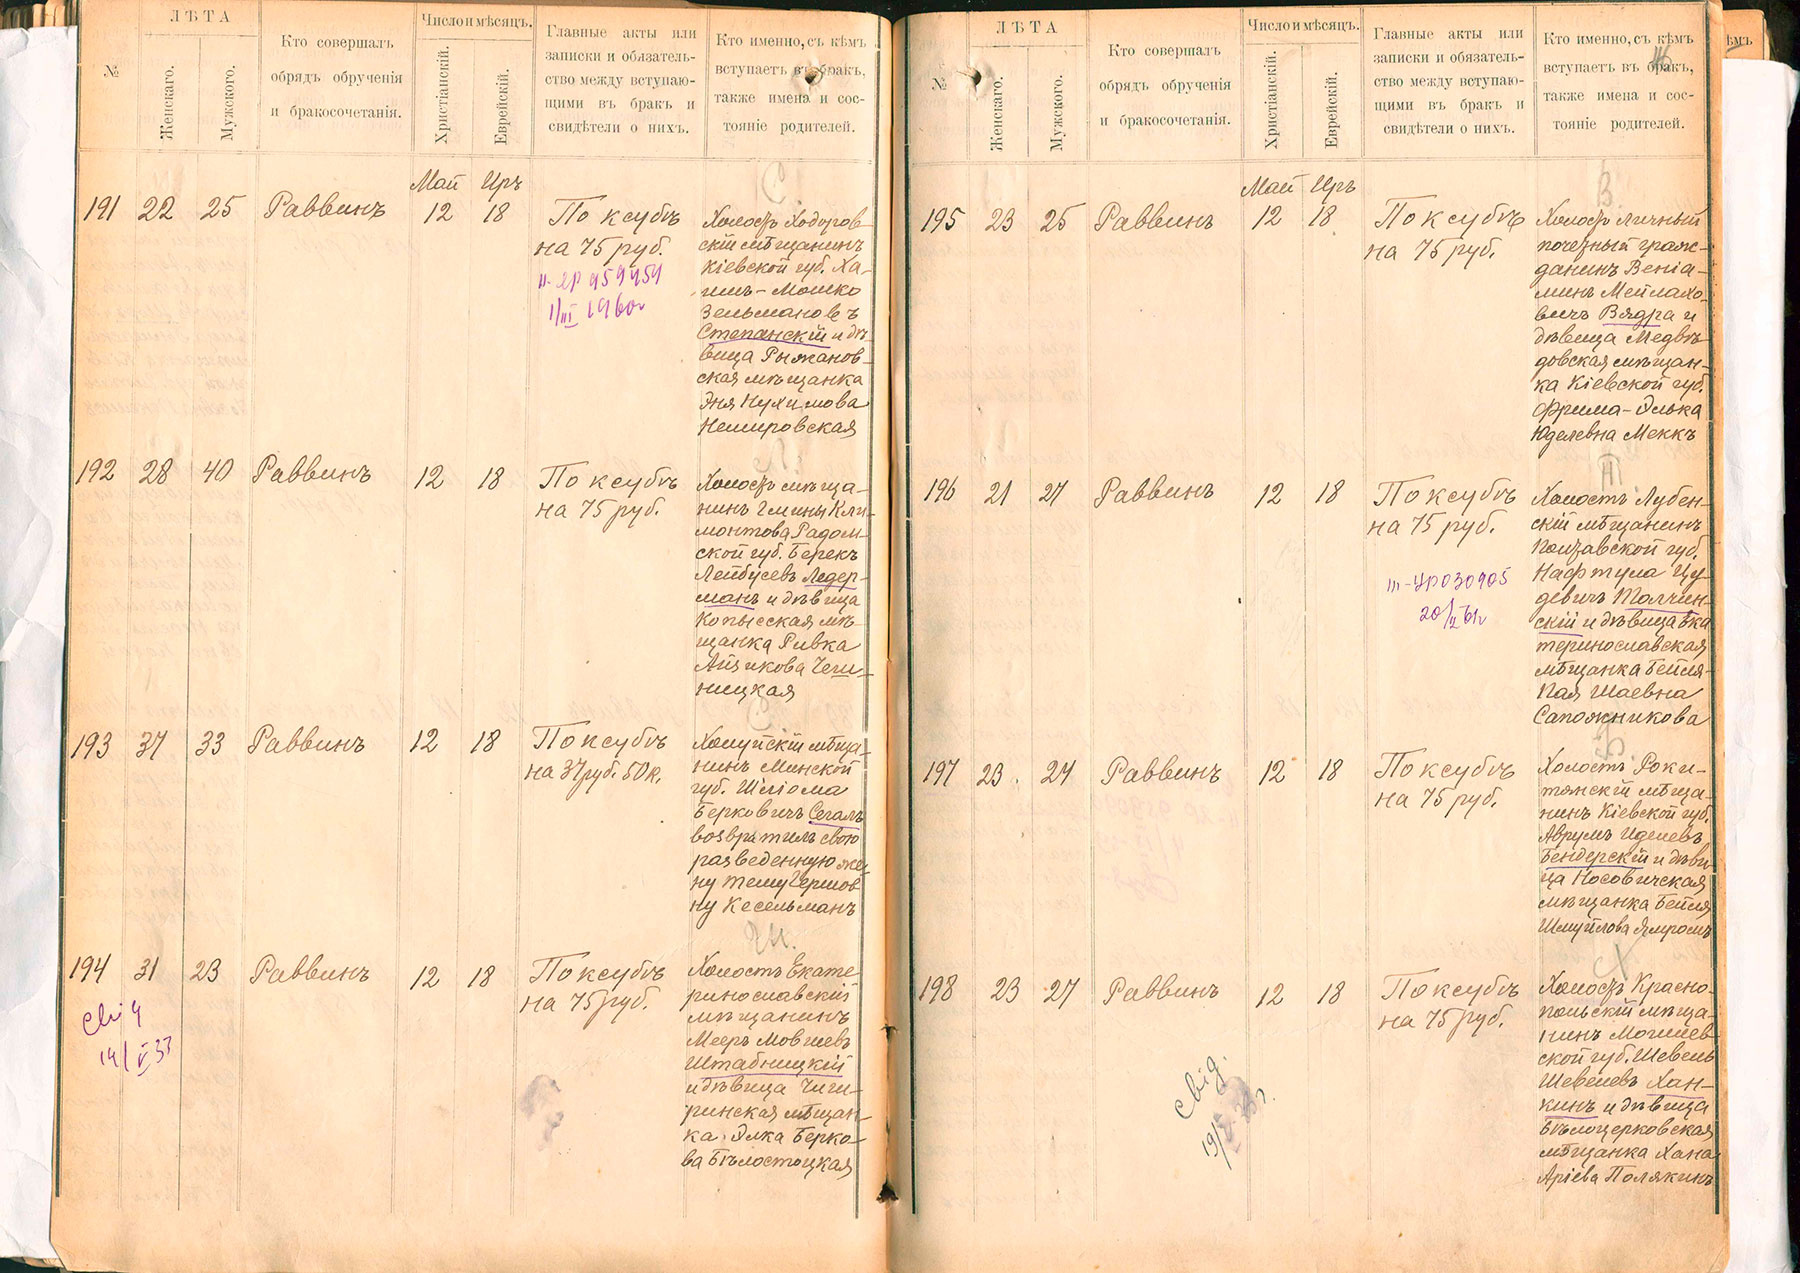 №
ЛѢТА
Женскаго.
Мужского.
Кто совершалъ
обрядъ обрученія
и бракосочетанія.
Число и мѣсяцъ.
Христіанскій.
Еврейскій.
Главные акты или
записки и обязатель-
ство между вступаю-
щими въ бракъ и
свидѣтели о нихъ.
Кто именно, съ кѣмъ
вступаетъ въ бракъ,
также имена и сос-
тояніе родителей.
Май Иръ
191 22 25 Раввинъ 12 18
По ксубѣ
на 75 руб.
1/III 1960г
С.
Холостъ Ходоров-
скій мѣщанинъ
Кіевской губ. Ха-
имъ-Мошко
Зельмановъ
Степанскій и дѣ-
вица Рыжанов-
ская мѣщанка
Эня Нухимова
Немировская
192 28 40 Раввинъ 12 18
По ксубѣ
на 75 руб.
Л.
Холостъ мѣща-
нинъ Гмины Кли-
монтова Радом-
ской губ. Берекъ
Лейбусевъ Ледер-
манъ и дѣвица
Копысская мѣ-
щанка Ривка
Айзикова
ницкая
193 37 33 Раввинъ 12 18
По ксубѣ
на 37 руб. 50 к.
С.
Холуйскій мѣща-
нинъ Минской
губ. Шліома
Берковичъ Сегалъ
возвратилъ свою
разведенную же-
ну Тему Гершов-
ну Кесельманъ
194 31 23 Раввинъ 12 18
По ксубѣ
на 75 руб.
14/V 33
Ш.
Холостъ Екате-
ринославскій
мѣщанинъ
Мееръ Мовшевъ
Штабницкій
и дѣвица Чиги-
ринская мѣщан-
ка Элка Берко-
ва Бѣлостоцкая
№
ЛѢТА
Женскаго.
Мужского.
Кто совершалъ
обрядъ обрученія
и бракосочетанія.
Число и мѣсяцъ.
Христіанскій.
Еврейскій.
Главные акты или
записки и обязатель-
ство между вступаю-
щими въ бракъ и
свидѣтели о нихъ.
Кто именно, съ кѣмъ
вступаетъ въ бракъ,
также имена и сос-
тояніе родителей.
ѣмъ
Май Иръ
195 23 25 Раввинъ 12 18
По ксубѣ
на 75 руб.
В.
Холостъ личный
почетный граж-
данинъ Веніа-
минъ Мейлахо-
вичъ Вядра и
дѣвица Медвѣ-
довская мѣщан-
ка Кіевской губ.
Фрима-Элька
Юделевна Меккъ
196 21 27 Раввинъ 12 18
По ксубѣ
на 75 руб.
III-УР030905
20/II 61г
Т.
Холостъ Лубен-
скій мѣщанинъ
Полтавской губ.
Нафтула Цу-
девичъ Толчин-
скій и дѣвица Ека-
теринославская
мѣщанка Бейля-
Пая Шаевна
Сапожникова
197 23 24 Раввинъ 12 18
По ксубѣ
на 75 руб.
Б.
Холостъ Роки-
тянскій мѣща-
нинъ Кіевской губ.
Аврумъ Иделевъ
Бендерскій и дѣви-
ца Носовичская
мѣщанка Бейля
Шмуйлова Ямполъ
198 23 27 Раввинъ 12 18
По ксубѣ
на 75 руб.
Х
Холостъ Красно-
польскій мѣща-
нинъ Могилев-
ской губ. Шевель
Шевелевъ Хан-
кинъ и дѣвица
Бѣлоцерковская
мѣщанка Хана
Аріева Полякинъ